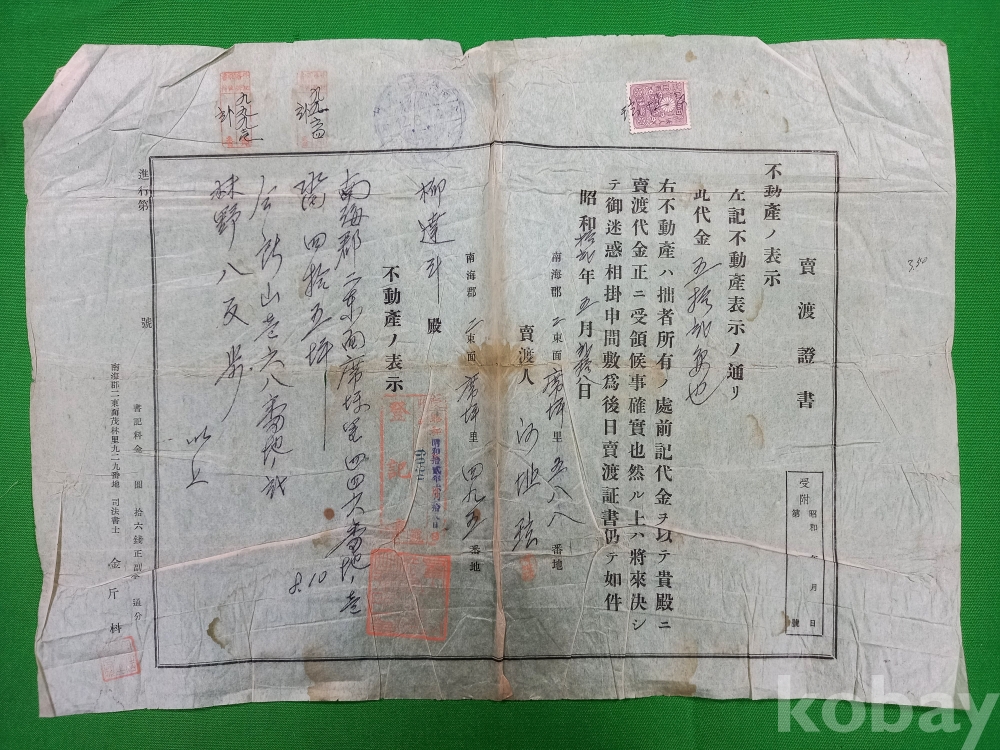 賣渡證書
受附
昭和 年 月 日
第 號
不動産ノ表示
左記不動産表示ノ通リ
此代金五拾貳圓也
右不動産ハ拙者所有ノ處前記代金ヲ以テ貴殿ニ
賣渡代金正ニ受領候事確實也然ル上ハ將來決シ
テ御迷惑相掛申間敷爲後日賣渡証書仍テ如件
昭和拾貳年五月貳拾八日
南海郡二東面席坪里五八八番地
賣渡人
南海郡二東面席坪里四九五番地
柳達斗 殿
不動産ノ表示
南海郡二東面席坪里四四六番地ノ壱
四拾五坪
仝所山壱六八番地ノ貳
林野八反歩
以上
8.10
3.50
登記
進行第 號
書記料金 圓 拾六錢正副 通分
南海郡二東面茂林里九二九番地 司法書士 金斤
kobay